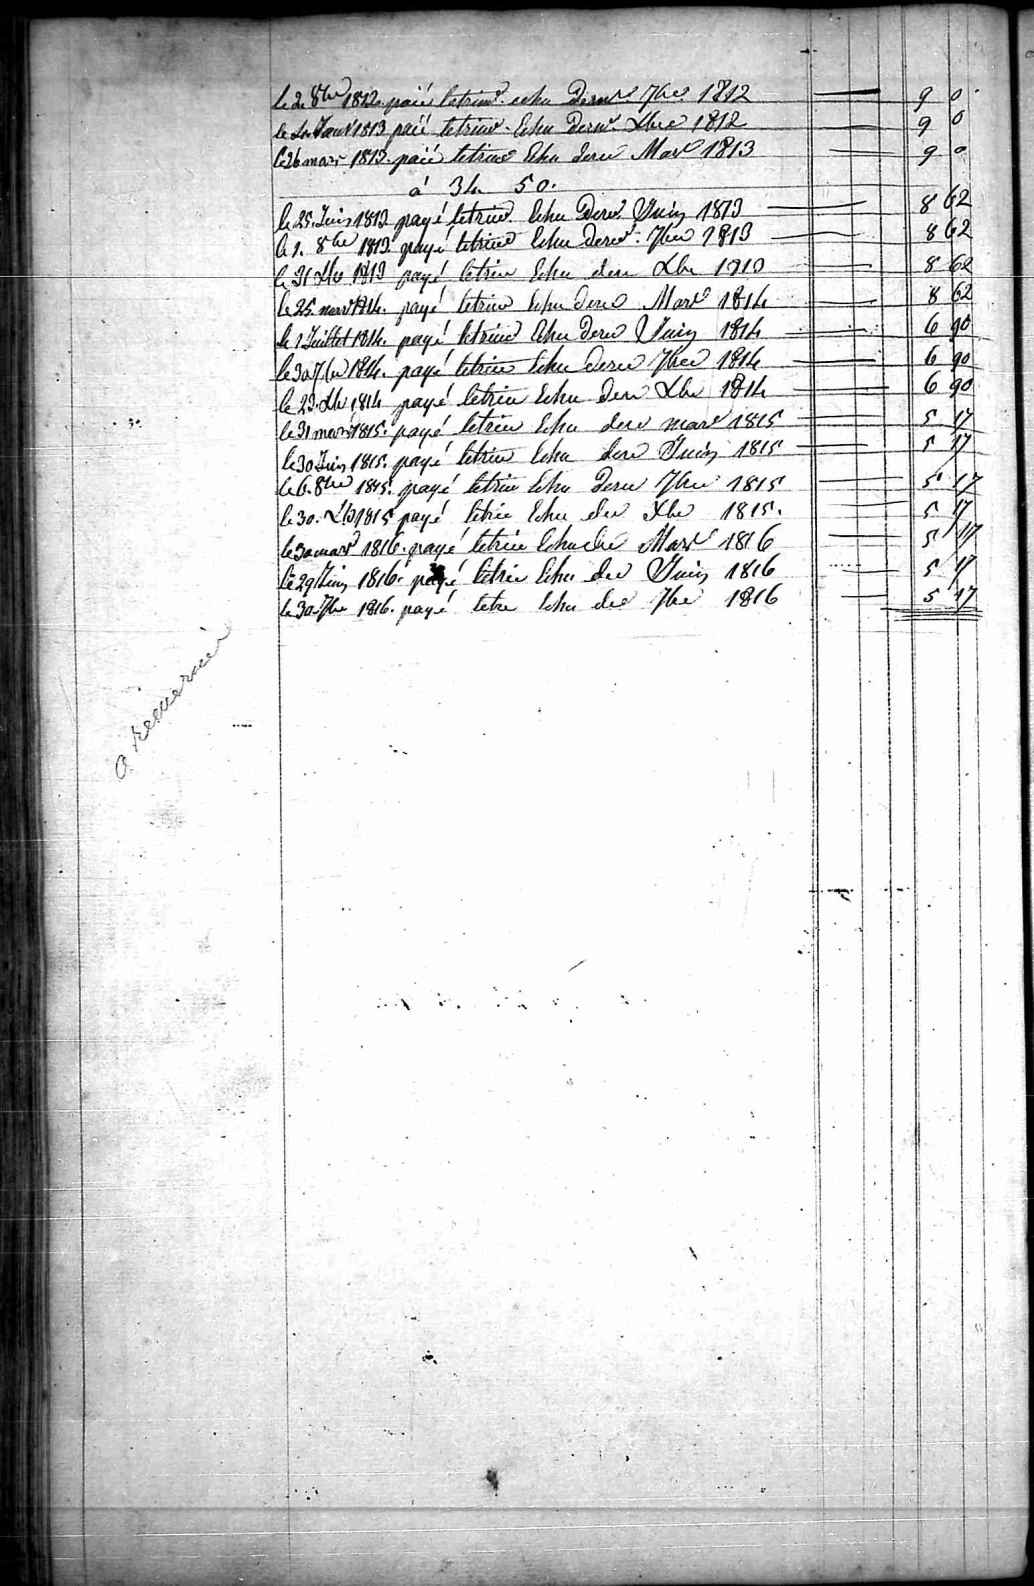 le 2. 8bre 1812. paié letrimr. echu Dernr 7bre 1812 9 0
le 2 Janvr 1813 paié letrimr. Echu Dernr. Xbre 1812 9 0
le 26 mars 1813. paié letrimr Echu dern Mars 1813 9 0
à 34. 50.
le 25. Juin 1813 payé letrim Echu Dern. Juin 1813 8 62
le 1. 8bre 1813. payé letrim Echu dern: 7bre 1813 8 62
le 31 Xbre 1813 payé letrim Echu dern Xbre 1813 8 62
le 25. mars 1814. payé letrim Echu dern Mars 1814 8 62
le 1 Juillet 1814. payé letrim Echu dern Juin 1814 6 90
le 30 7bre 1814. payé letrim Echu dern 7bre 1814 6 90
le 23. Xbre 1814 payé letrim Echu dern Xbre 1814 6 90
le 31 mars 1815. payé letrim Echu dern mars 1815 5 17
le 30 Juin 1815. payé letrim Echu dern Juin 1815 5 17
le 6. 8bre 1815. payé letrim Echu dern 7bre 1815 5 17
le 30. Xb 1815 payé letrim Echu der Xbre 1815. 5 17
le 30 mars 1816. payé letrim Echu der Mars 1816 5 17
le 29 Juin 1816. payé letrim Echu der Juin 1816 5 17
le 30 7bre 1816. payé letre Echu der 7bre 1816 5 17